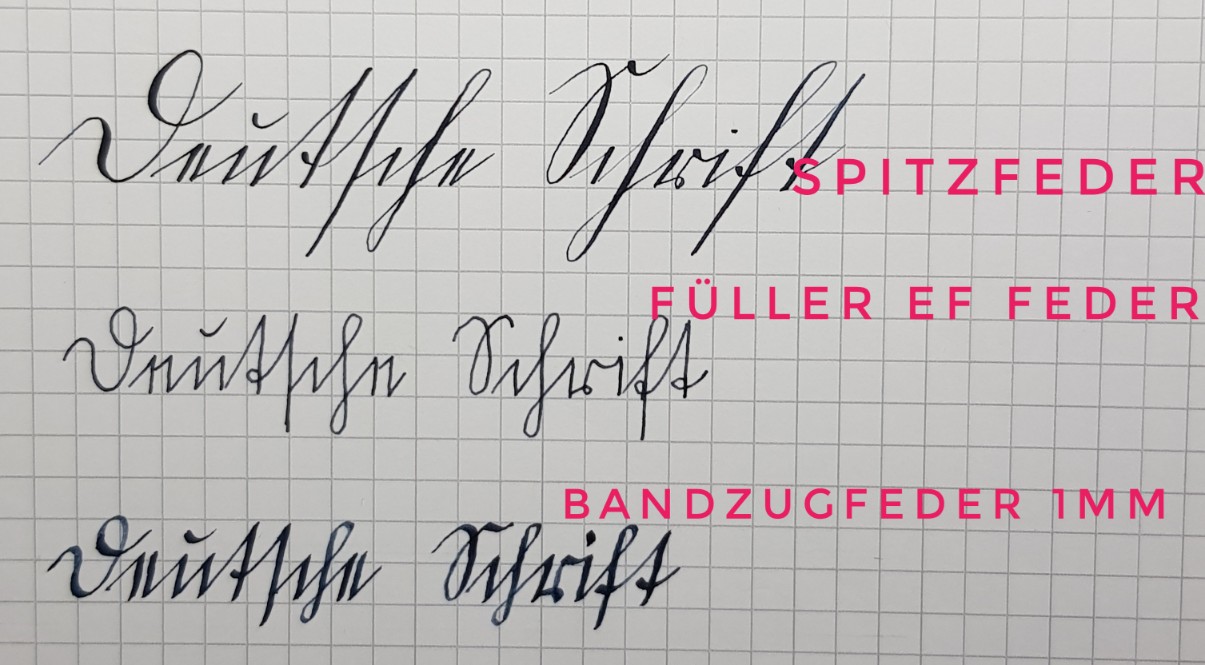 Deutsche Schrift SPITZFEDER
FÜLLER EF FEDER
Deutsche Schrift
BANDZUGFEDER 1MM
Deutsche Schrift